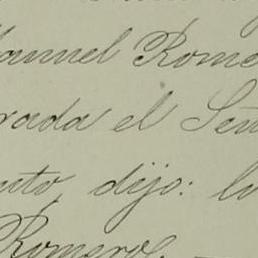 anuel Rome
rada el Señ
uto, dijo: lo
Romero.